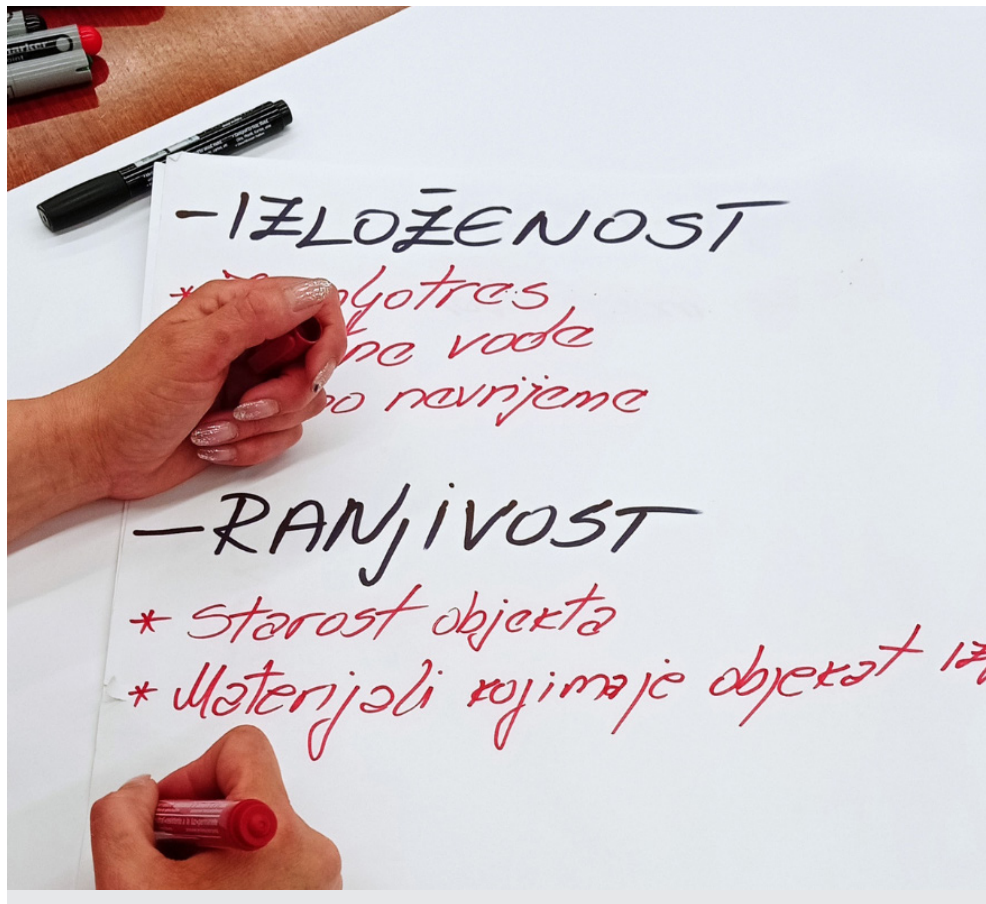 marker
-IZLOŽENOST
*
vode
nevrijeme
-RANJIVOST
* Starost objekta
* Materijali kojima je objekat